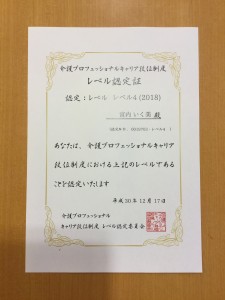 介護プロフェッショナルキャリア段位制度
レベル認定証
認定：レベル レベル4 (2018)
殿
あなたは、介護プロフェッショナルキャリア
段位制度における上記のレベルである
ことを認定いたします
平成30年12月17日
介護プロフェッショナル
キャリア段位制度 レベル認定委員会